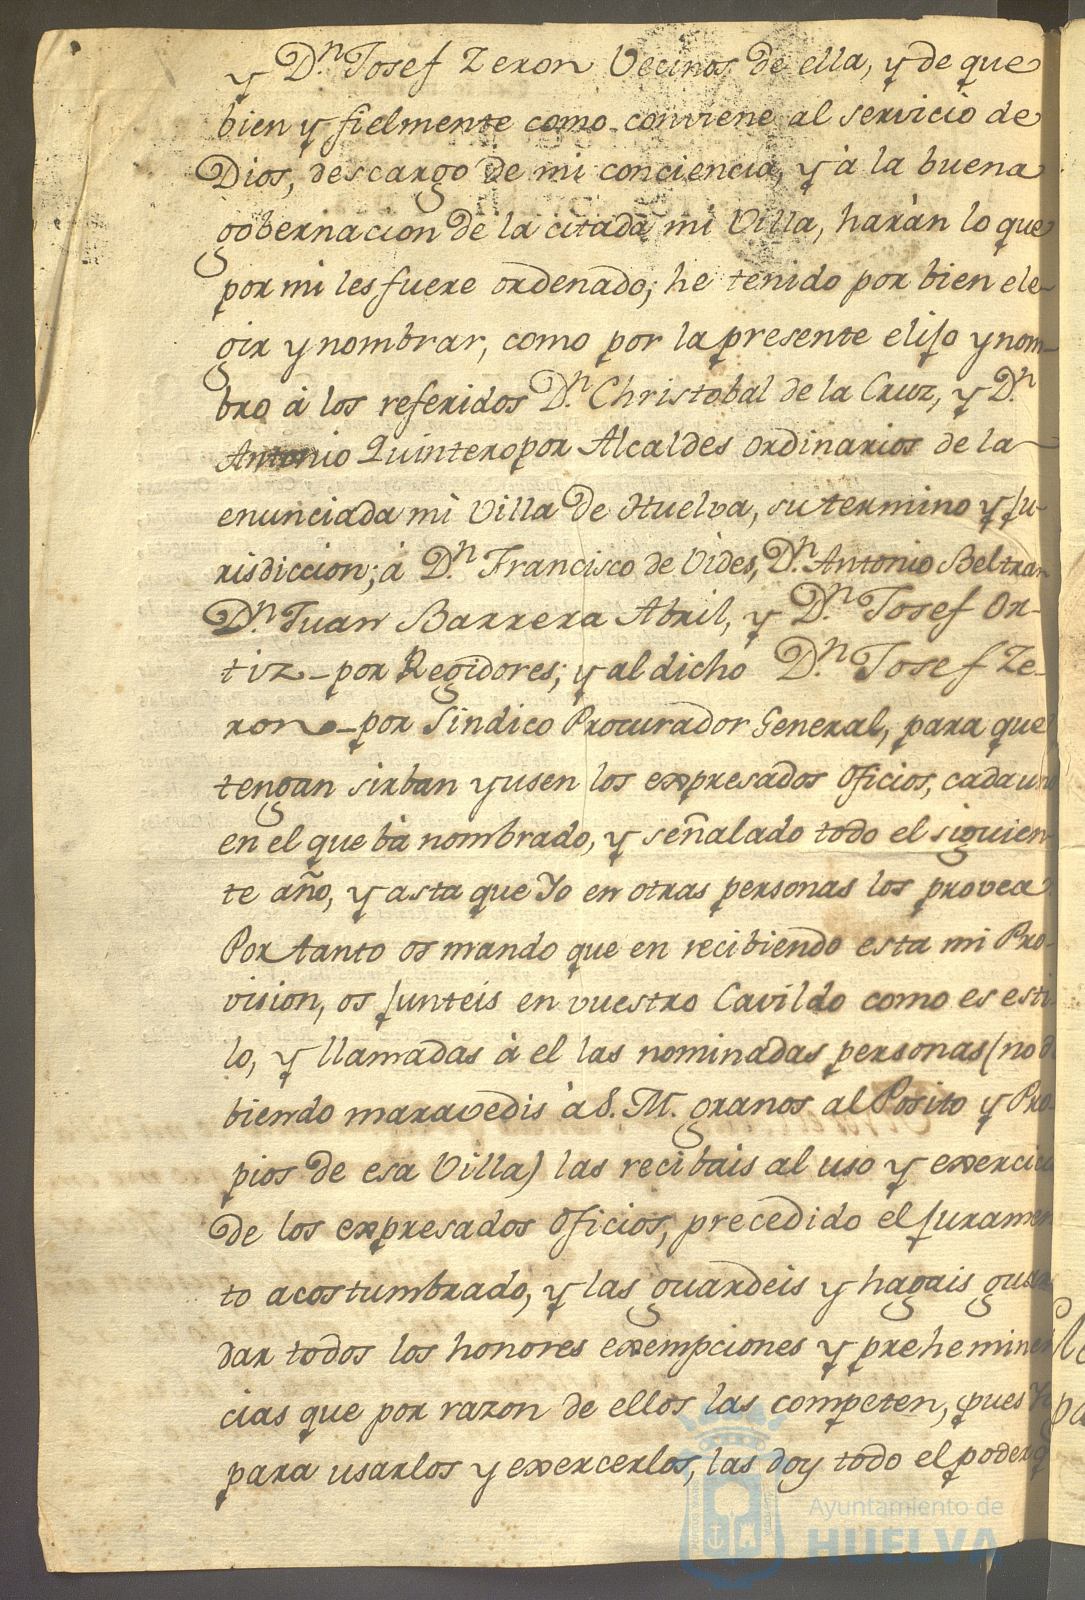 y D.ⁿ Josef Zeron Vecinos de ella, y de que
bien y fielmente como conviene al servicio de
Dios, descargo de mi conciencia, y à la buena
gobernacion de la citada mi Villa, haràn lo que
por mi les fuere ordenado; he tenido por bien ele-
gir y nombrar, como por la presente elijo y nom-
bro à los referidos D.ⁿ Christobal de la Cruz, y D.ⁿ
Antonio Quintero por Alcaldes ordinarios de la
enunciada mi Villa de Huelva, su termino y ju-
risdiccion; à D.ⁿ Francisco de Vides, D.ⁿ Antonio Beltran
D.ⁿ Juan Barrera Abril, y D.ⁿ Josef Or-
tiz - por Regidores; y al dicho D.ⁿ Josef Ze-
ron - por Sindico Procurador General, para que
tengan sirban y usen los expresados oficios, cada uno
en el que bà nombrado, y señalado todo el siguien-
te año, y asta que Yo en otras personas los provea
Por tanto os mando que en recibiendo esta mi Pro-
vision, os junteis en vuestro Cavildo como es esti-
lo, y llamadas à el las nominadas personas (no de
biendo maravedis à S. M. granos al Posito y Pro-
pios de esa Villa) las recibais al uso y exercicio
de los expresados oficios, precedido el juramen
to acostumbrado, y las guardeis y hagais guar
dar todos los honores exempciones y preheminen
cias que por razon de ellos las competen, pues Yo
para usarlos y exercerlos, las doy todo el poder q
Ayuntamiento de
HUELVA